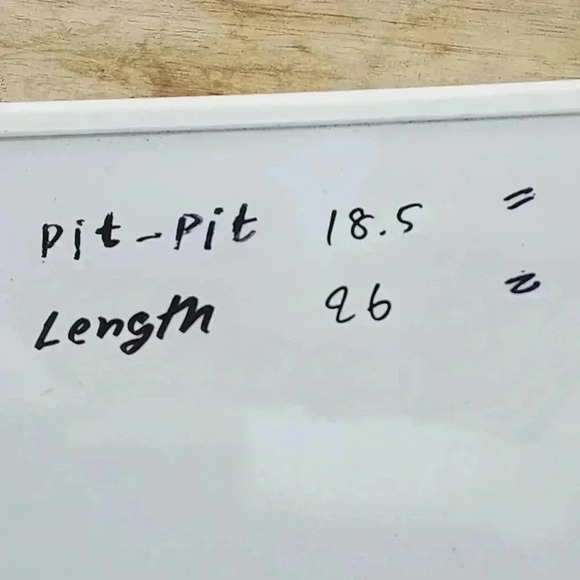 Pit-Pit 18.5 "
Length 26 "